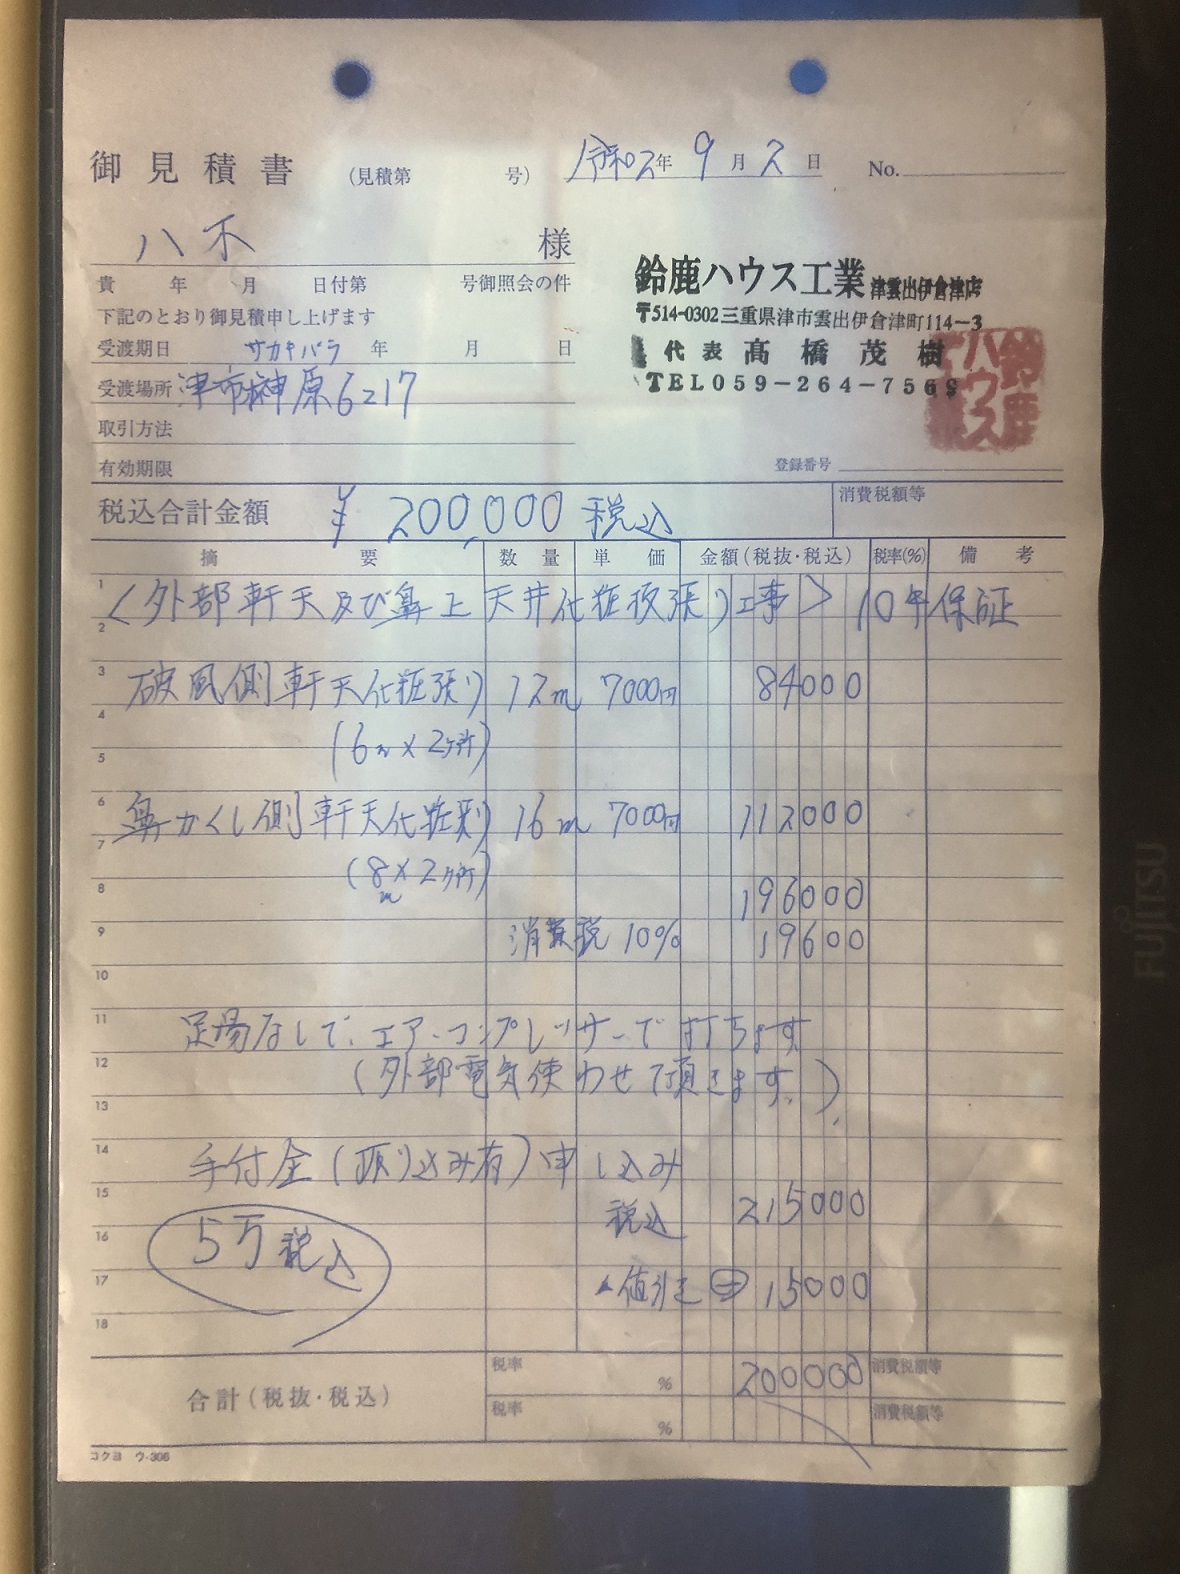 御見積書 (見積第 号) 令和02年 9月2日 No.
八木 様
貴 年 月 日付第 号御照会の件
下記のとおり御見積申し上げます
鈴鹿ハウス工業 津雲出伊倉津店
〒514-0302三重県津市雲出伊倉津町114-3
代表 髙橋茂樹
TEL059-264-7568
鈴鹿ハウス
受渡期日 年 月 日
サカキバラ
受渡場所 津市榊原6217
取引方法
有効期限
登録番号
税込合計金額 ¥200,000 税込 消費税額等
摘要 数量 単価 金額(税抜・税込) 税率(%) 備考
1
<外部軒天及び鼻上天井化粧板張り工事> 10年保証
2
3 破風側軒天化粧張り 12m 7000円 84000
4 (6m×2ヶ所)
5
6 鼻かくし側軒天化粧張り 16m 7000円 112000
7 (8m×2ヶ所)
8 196000
9 消費税 10% 19600
10
11 足場なしで、エアーコンプレッサーで打ちます
12 (外部電気使わせて頂きます。)
13
14 手付金(振り込み有)申し込み
15 税込 215000
16 5万税込
17 値引き 15000
18
合計(税抜・税込) 税率 % 200000 消費税額等
税率 % 消費税額等
コクヨ ウ-306
FUJITSU